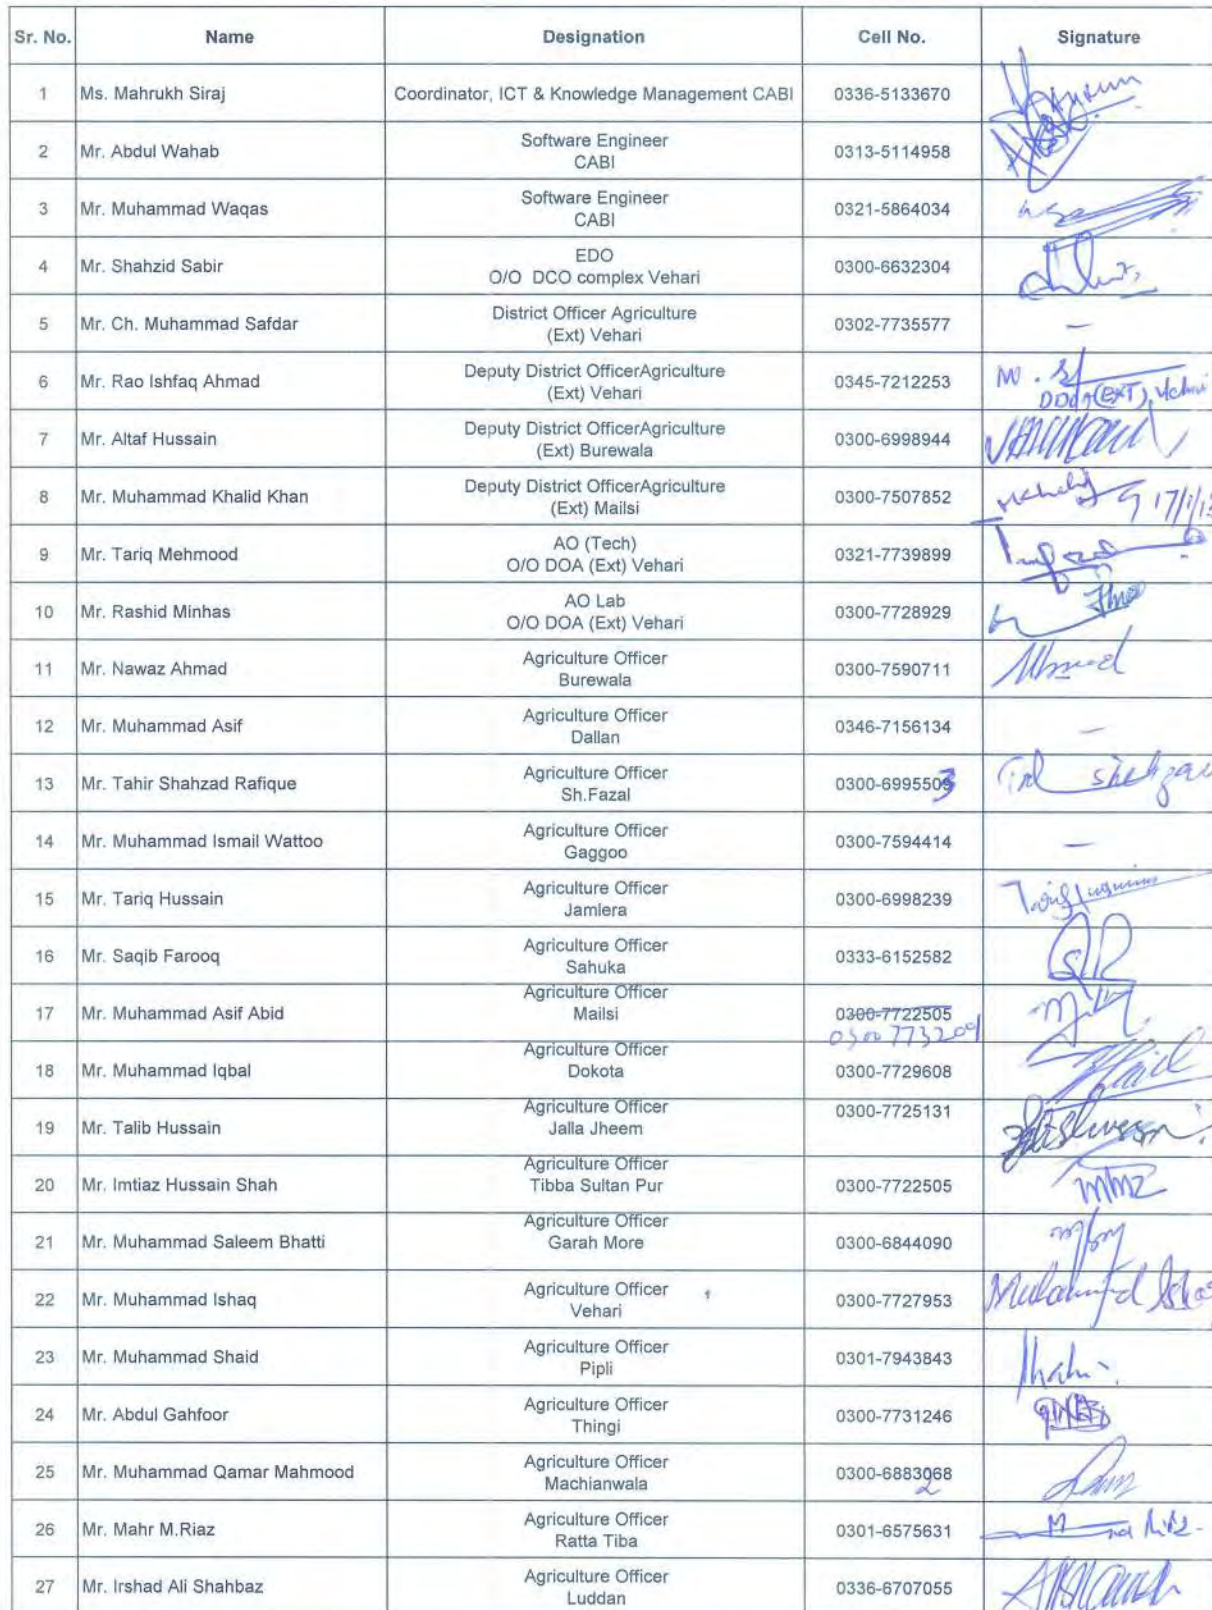 Sr. No. Name Designation Cell No. Signature
1 Ms. Mahrukh Siraj Coordinator, ICT & Knowledge Management CABI 0336-5133670
2 Mr. Abdul Wahab Software Engineer
CABI 0313-5114958
3 Mr. Muhammad Waqas Software Engineer
CABI 0321-5864034
4 Mr. Shahzid Sabir EDO
O/O DCO complex Vehari 0300-6632304
5 Mr. Ch. Muhammad Safdar District Officer Agriculture
(Ext) Vehari 0302-7735577 —
6 Mr. Rao Ishfaq Ahmad Deputy District OfficerAgriculture
(Ext) Vehari 0345-7212253
7 Mr. Altaf Hussain Deputy District OfficerAgriculture
(Ext) Burewala 0300-6998944
8 Mr. Muhammad Khalid Khan Deputy District OfficerAgriculture
(Ext) Mailsi 0300-7507852
9 Mr. Tariq Mehmood AO (Tech)
O/O DOA (Ext) Vehari 0321-7739899
10 Mr. Rashid Minhas AO Lab
O/O DOA (Ext) Vehari 0300-7728929
11 Mr. Nawaz Ahmad Agriculture Officer
Burewala 0300-7590711 Ahmed
12 Mr. Muhammad Asif Agriculture Officer
Dallan 0346-7156134 —
13 Mr. Tahir Shahzad Rafique Agriculture Officer
Sh.Fazal 0300-6995503
14 Mr. Muhammad Ismail Wattoo Agriculture Officer
Gaggoo 0300-7594414 —
15 Mr. Tariq Hussain Agriculture Officer
Jamlera 0300-6998239
16 Mr. Saqib Farooq Agriculture Officer
Sahuka 0333-6152582
17 Mr. Muhammad Asif Abid Agriculture Officer
Mailsi 0300-7722505
0300 773209
18 Mr. Muhammad Iqbal Agriculture Officer
Dokota 0300-7729608
19 Mr. Talib Hussain Agriculture Officer
Jalla Jheem 0300-7725131
20 Mr. Imtiaz Hussain Shah Agriculture Officer
Tibba Sultan Pur 0300-7722505
21 Mr. Muhammad Saleem Bhatti Agriculture Officer
Garah More 0300-6844090
22 Mr. Muhammad Ishaq Agriculture Officer
Vehari 0300-7727953 Muhammad Ishaq
23 Mr. Muhammad Shaid Agriculture Officer
Pipli 0301-7943843
24 Mr. Abdul Gahfoor Agriculture Officer
Thingi 0300-7731246
25 Mr. Muhammad Qamar Mahmood Agriculture Officer
Machianwala 0300-6883068
2
26 Mr. Mahr M.Riaz Agriculture Officer
Ratta Tiba 0301-6575631
27 Mr. Irshad Ali Shahbaz Agriculture Officer
Luddan 0336-6707055